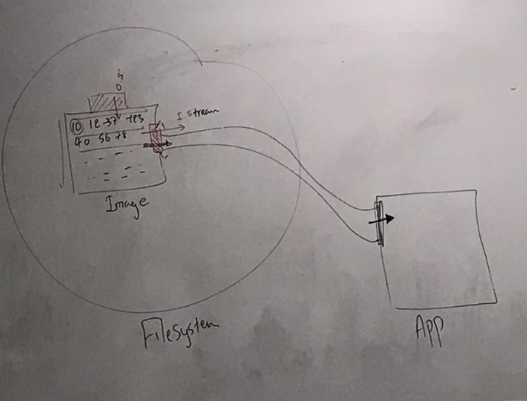 10 12 37 123
40 56 78
I stream
Image
Filesystem
App